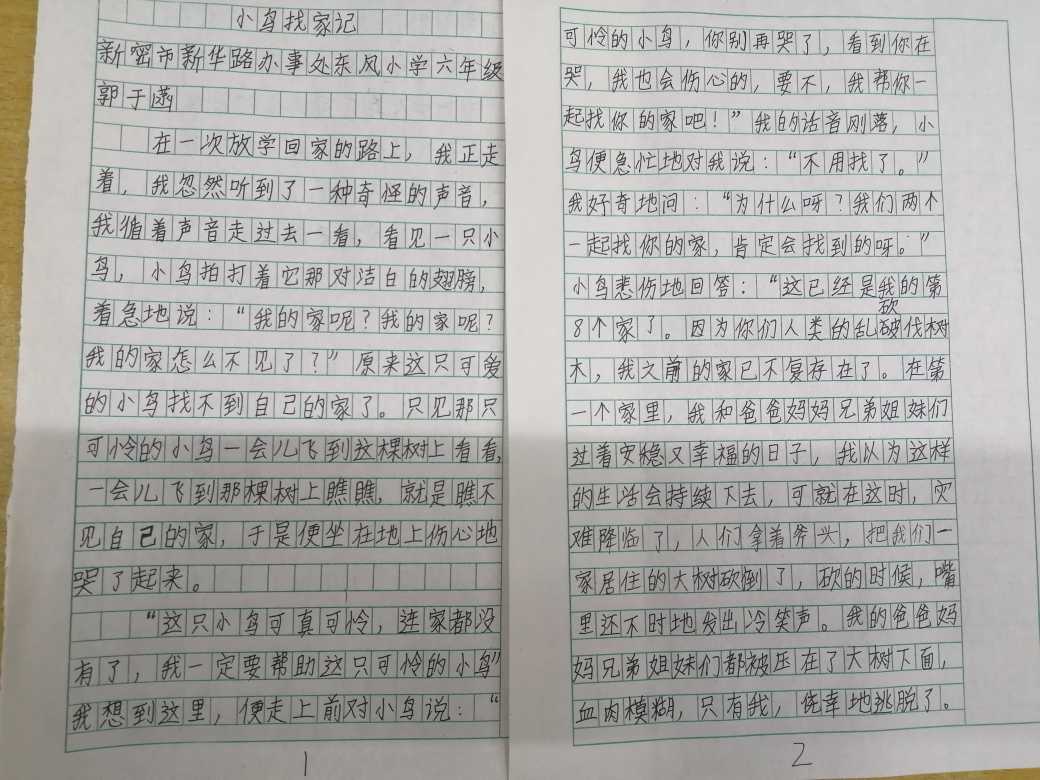 小鸟找家记
新密市新华路办事处东风小学六年级
郭于菡
在一次放学回家的路上，我正走
着，我忽然听到了一种奇怪的声音，
我循着声音走过去一看，看见一只小
鸟，小鸟拍打着它那对洁白的翅膀，
着急地说：“我的家呢？我的家呢？
我的家怎么不见了？”原来这只可爱
的小鸟找不到自己的家了。只见那只
可怜的小鸟一会儿飞到这棵树上看看，
一会儿飞到那棵树上瞧瞧，就是瞧不
见自己的家，于是便坐在地上伤心地
哭了起来。
“这只小鸟可真可怜，连家都没
有了，我一定要帮助这只可怜的小鸟”
我想到这里，便走上前对小鸟说：“
1
可怜的小鸟，你别再哭了，看到你在
哭，我也会伤心的，要不，我帮你一
起找你的家吧！”我的话音刚落，小
鸟便急忙地对我说：“不用找了。”
我好奇地问：“为什么呀？我们两个
一起找你的家，肯定会找到的呀。”
小鸟悲伤地回答：“这已经是我的第
8个家了。因为你们人类的乱砍伐树
木，我之前的家已不复存在了。在第
一个家里，我和爸爸妈妈兄弟姐妹们
过着安稳又幸福的日子，我以为这样
的生活会持续下去，可就在这时，灾
难降临了，人们拿着斧头，把我们一
家居住的大树砍倒了，砍的时候，嘴
里还不时地发出冷笑声。我的爸爸妈
妈兄弟姐妹们都被压在了大树下面，
血肉模糊，只有我，侥幸地逃脱了。
2